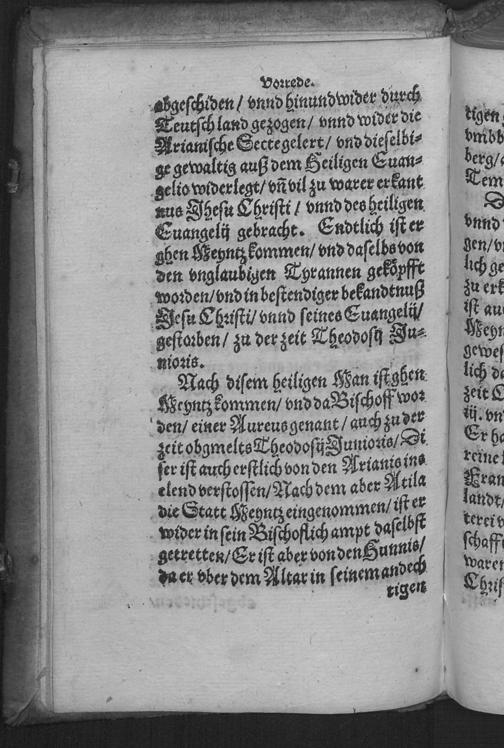 Vorrede.
abgeschiden / vnnd hinundwider durch
Teutschland gezogen / vnnd wider die
Arianische Secte gelert / vnd dieselbi-
ge gewaltig auß dem Heiligen Euan-
gelio widerlegt / vñ vil zu warer erkant
nus Jhesu Christi / vnnd des heiligen
Euangelij gebracht. Endtlich ist er
ghen Meyntz kommen / vnd daselbs von
den vnglaubigen Tyrannen geköpfft
worden / vnd in bestendiger bekandtnuß
Jesu Christi / vnnd seines Euangelij /
gestorben / zu der zeit Theodosij Ju-
nioris.
Nach disem heiligen Man ist ghen
Meyntz kommen / vnd da Bischoff wor
den / einer Aureus genant / auch zu der
zeit obgmelts Theodosij Junioris / Di
ser ist auch erstlich von den Arianis ins
elend verstossen / Nach dem aber Atila
die Statt Meyntz eingenommen / ist er
wider in sein Bischoflich ampt daselbst
getretten / Er ist aber von den Hunnis /
da er vber dem Altar in seinem andech
tigen
tigen
vmbb
berg / 
Tem
vnnd
gen / v
lich ge
zu erk
ist au
Meyn
gewes
lich da
zeit C
iij. vn
Er ha
reine
Fran
landt /
terei v
schaff
waren
Chris